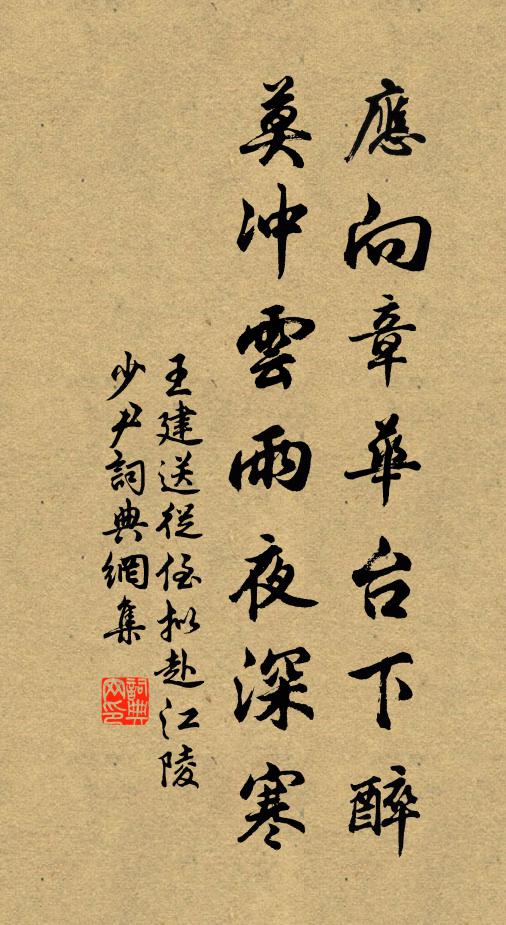 應向章華台下醉
莫沖雲雨夜深寒
王建送從侄拟赴江陵
少尹詞典網集
詞典网印